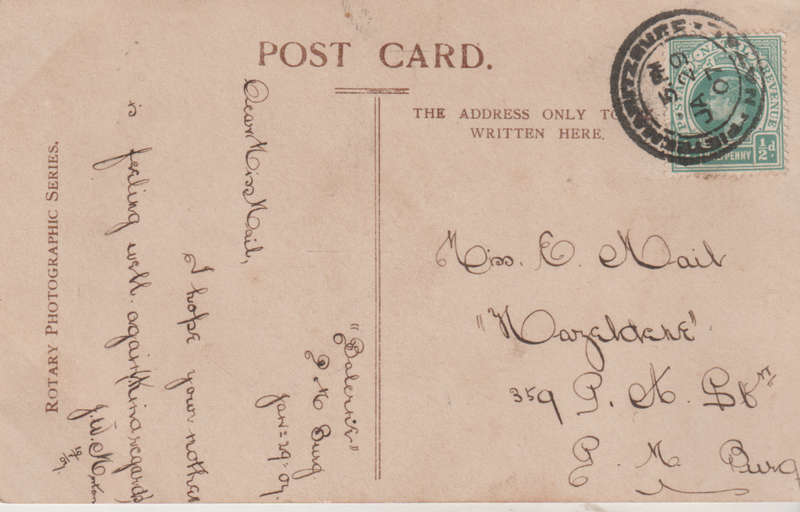 POST CARD.
THE ADDRESS ONLY TO
WRITTEN HERE.
ROTARY PHOTOGRAPHIC SERIES.
"Balerno"
P M Burg
Jan = 29 = 07
Dear Miss Mail,
I hope your mother
is feeling well again (Kind regards)
J. W.
Miss. E. Mail
"Hazeldene".
359 P. M. St
P. M. Burg
PIETERMARITZBURG
5 PM
JA 29
07
POSTAGE
REVENUE
HALFPENNY
½d